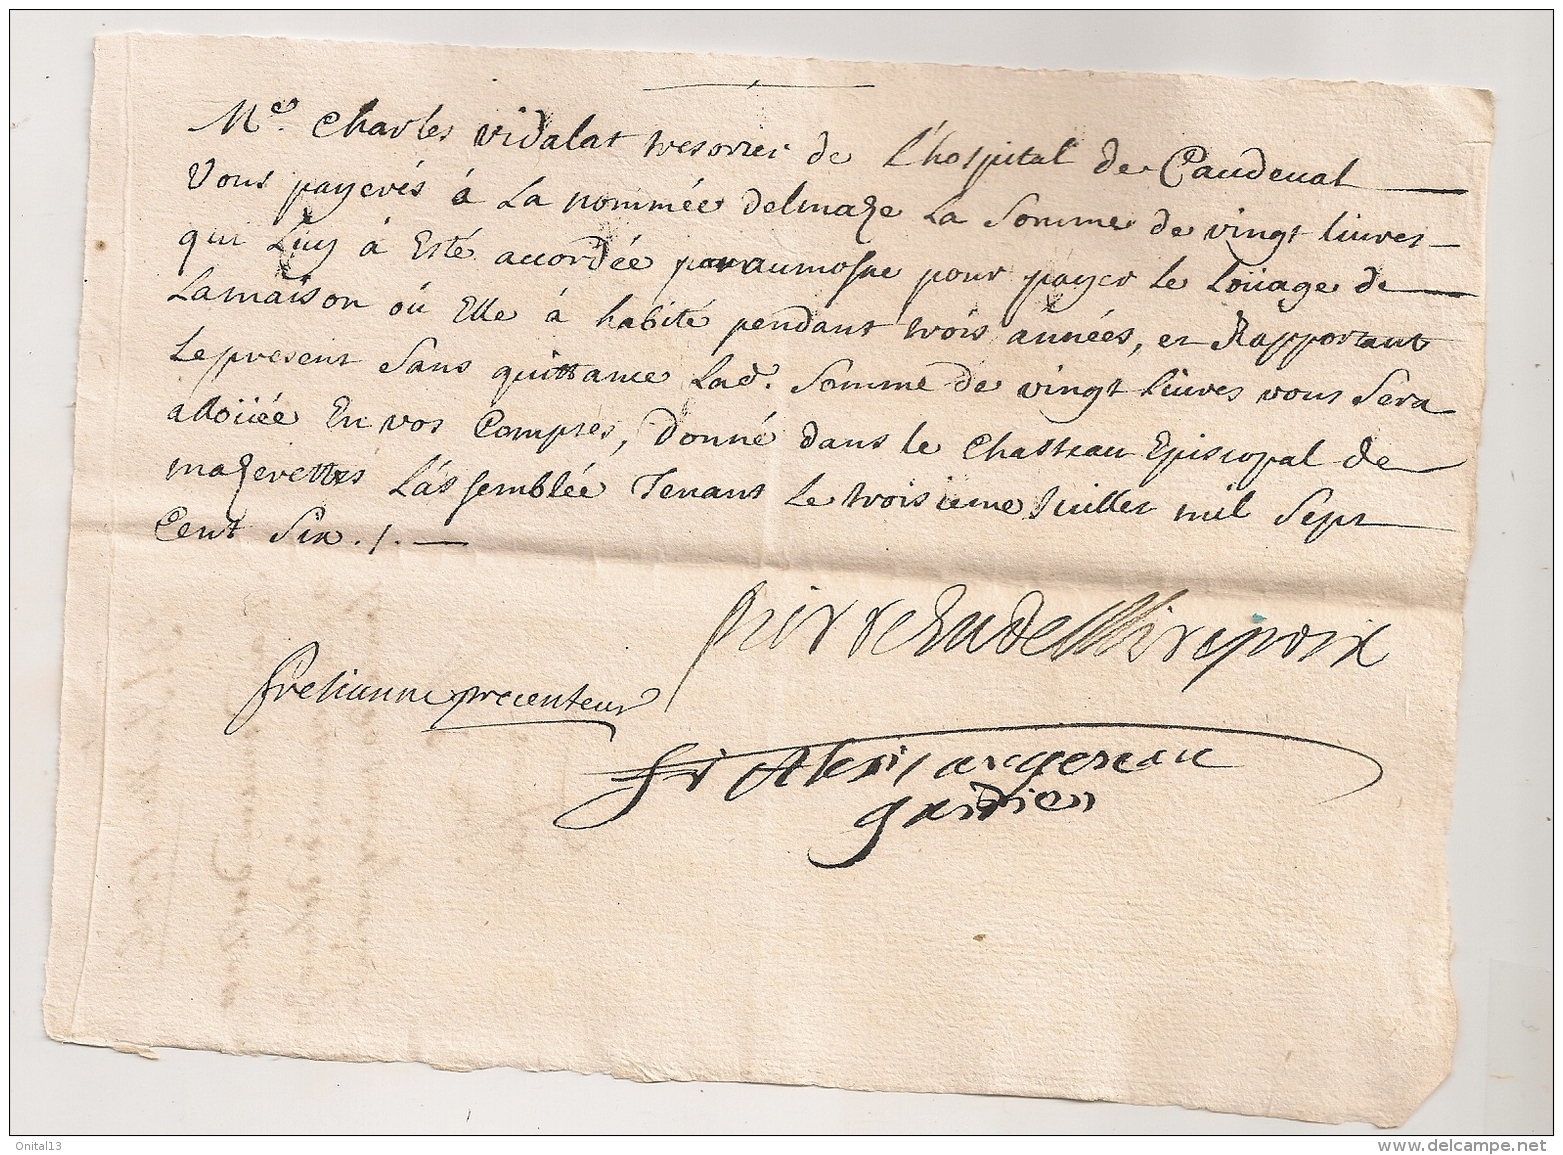 Me. Charles vidalat tresorier de L'hospital de Caudeual
Vous payerés à La nommée delmaze La Somme de vingt liures
qui Luy à Esté accordée par aumosne pour payer Le Loüage de
La maison où Elle à habité pendant trois années, et Rapportant
Le present Sans quittance Lad. Somme de vingt Liures vous Sera
alloüée En vos Comptes, Donné dans le Chasteau Episcopal de
mazerettes L'assemblée Tenant Le troisieme Juillet mil Sept
Cent Six ./.
Pierre Eu de Mirepoix
precenteur
fr Alexis argereau
gardien
Onital13
delcampe.net